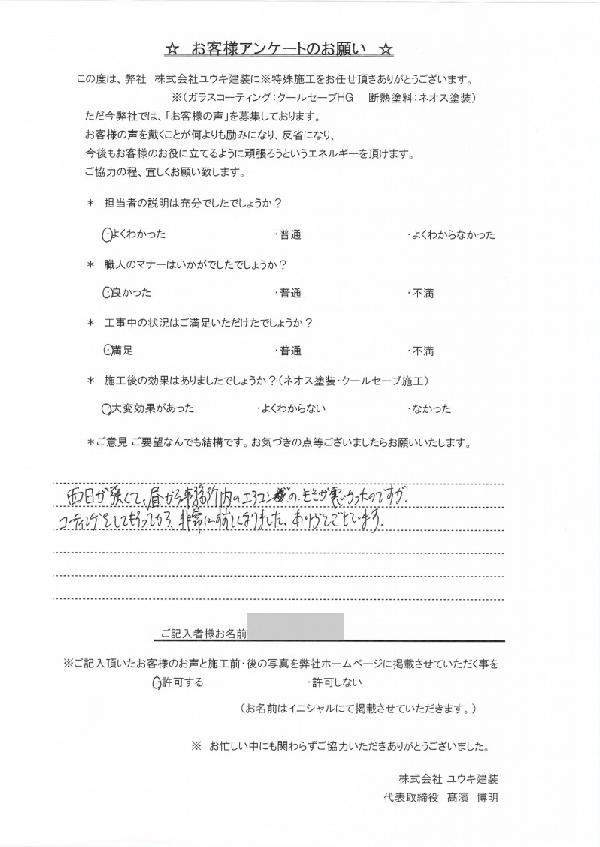 ☆ お客様アンケートのお願い ☆
この度は、弊社 株式会社ユウキ建装に※特殊施工をお任せ頂きありがとうございます。
※(ガラスコーティング:クールセーブHG 断熱塗料:ネオス塗装)
ただ今弊社では、「お客様の声」を募集しております。
お客様の声を戴くことが何よりも励みになり、反省になり、
今後もお客様のお役に立てるように頑張ろうというエネルギーを頂けます。
ご協力の程、宜しくお願い致します。
* 担当者の説明は充分でしたでしょうか?
よくわかった ・普通 ・よくわからなかった
* 職人のマナーはいかがでしたでしょうか?
良かった ・普通 ・不満
* 工事中の状況はご満足いただけたでしょうか?
満足 ・普通 ・不満
* 施工後の効果はありましたでしょうか?(ネオス塗装・クールセーブ施工)
大変効果があった ・よくわからない ・なかった
*ご意見 ご要望なんでも結構です。お気づきの点等ございましたらお願いいたします。
西日が強くて、昼から事務所内のエアコンの ききが悪かったのですが、
コーティングをしてもらってから、非常に 、ありがとうございます。
ご記入者様お名前
※ご記入頂いたお客様のお声と施工前・後の写真を弊社ホームページに掲載させていただく事を
許可する ・許可しない
(お名前はイニシャルにて掲載させていただきます。)
※ お忙しい中にも関わらずご協力いただきありがとうございました。
株式会社 ユウキ建装
代表取締役 髙濱 博明